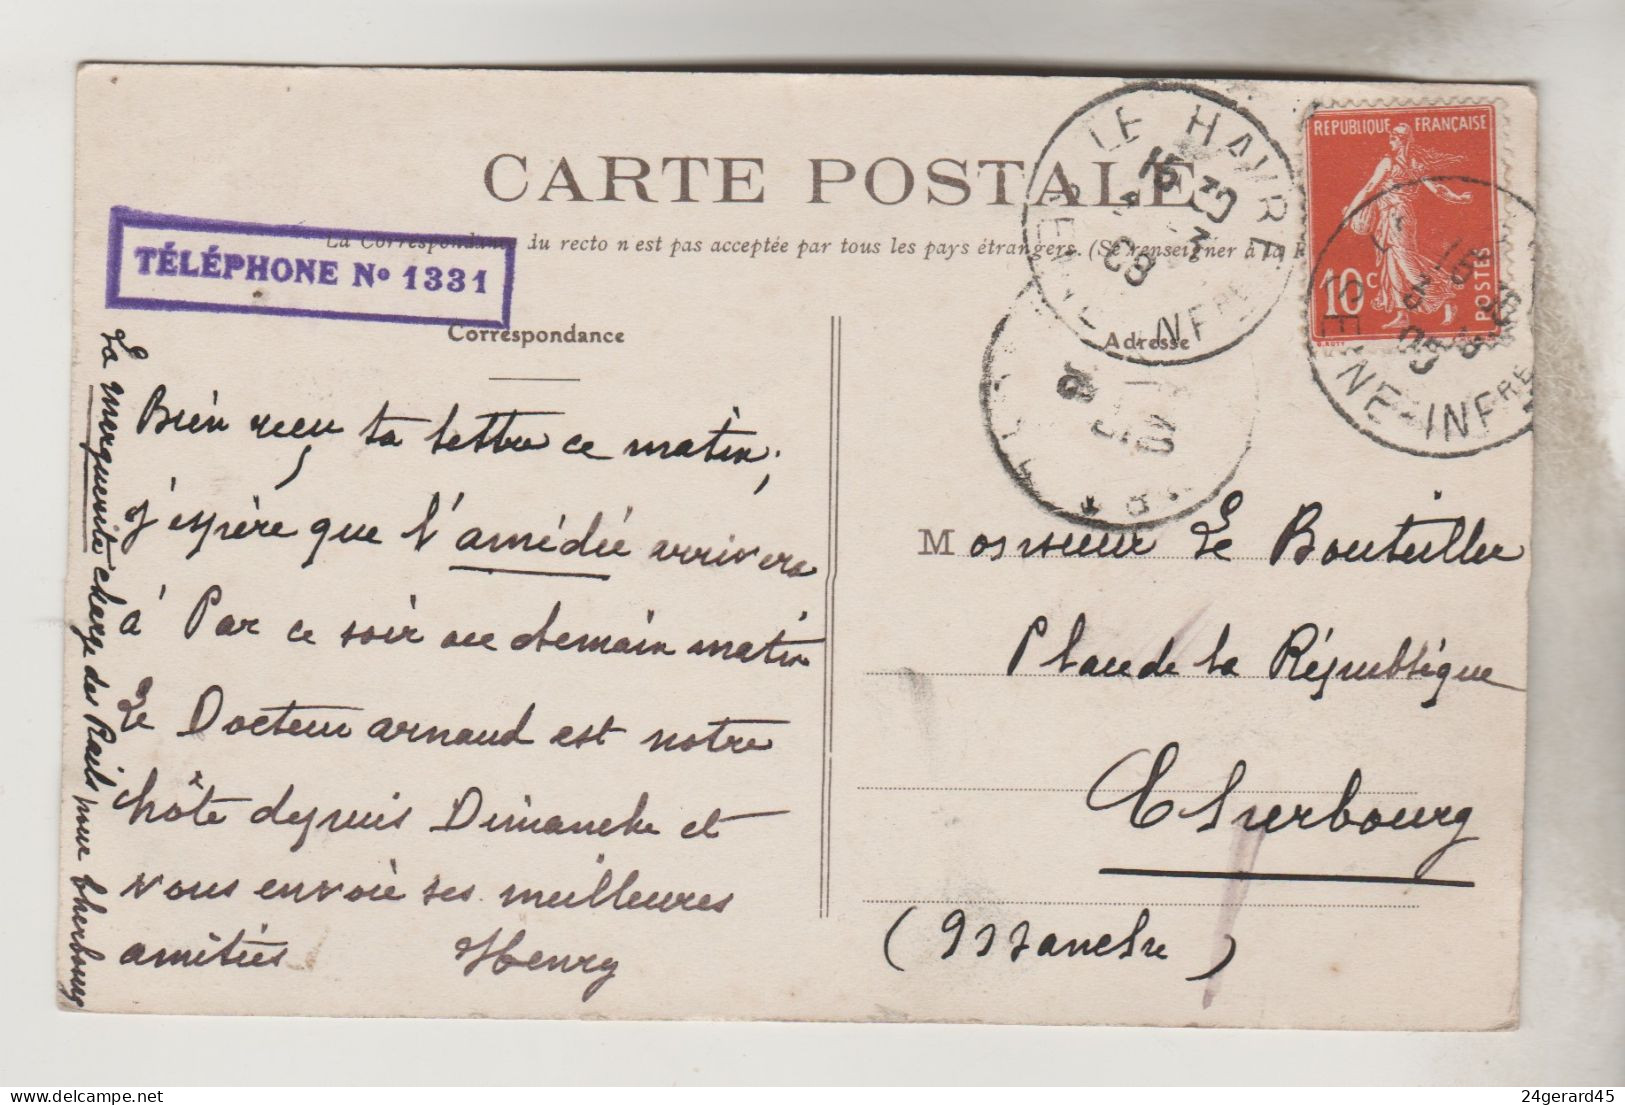 CARTE POSTALE
La Correspondance du recto n'est pas acceptée par tous les pays étrangers. (Se renseigner à la
TÉLÉPHONE No 1331
Correspondance
Adresse
REPUBLIQUE FRANÇAISE
10c
POSTES
LE HAVRE
SEINE-INFRE
INE-INFRE
Bien reçu ta lettre ce matin,
j'espère que l'amédée arrivera
à Par ce soir ou demain matin
Le Docteur arnaud est notre
hôte depuis Dimanche et
vous envoie ses meilleures
amitiés Henry
La marguerite charge des Rails pour Cherbourg
Monsieur Le Bouteiller
Place de la République
Cherbourg
(Manche)
24gerard45